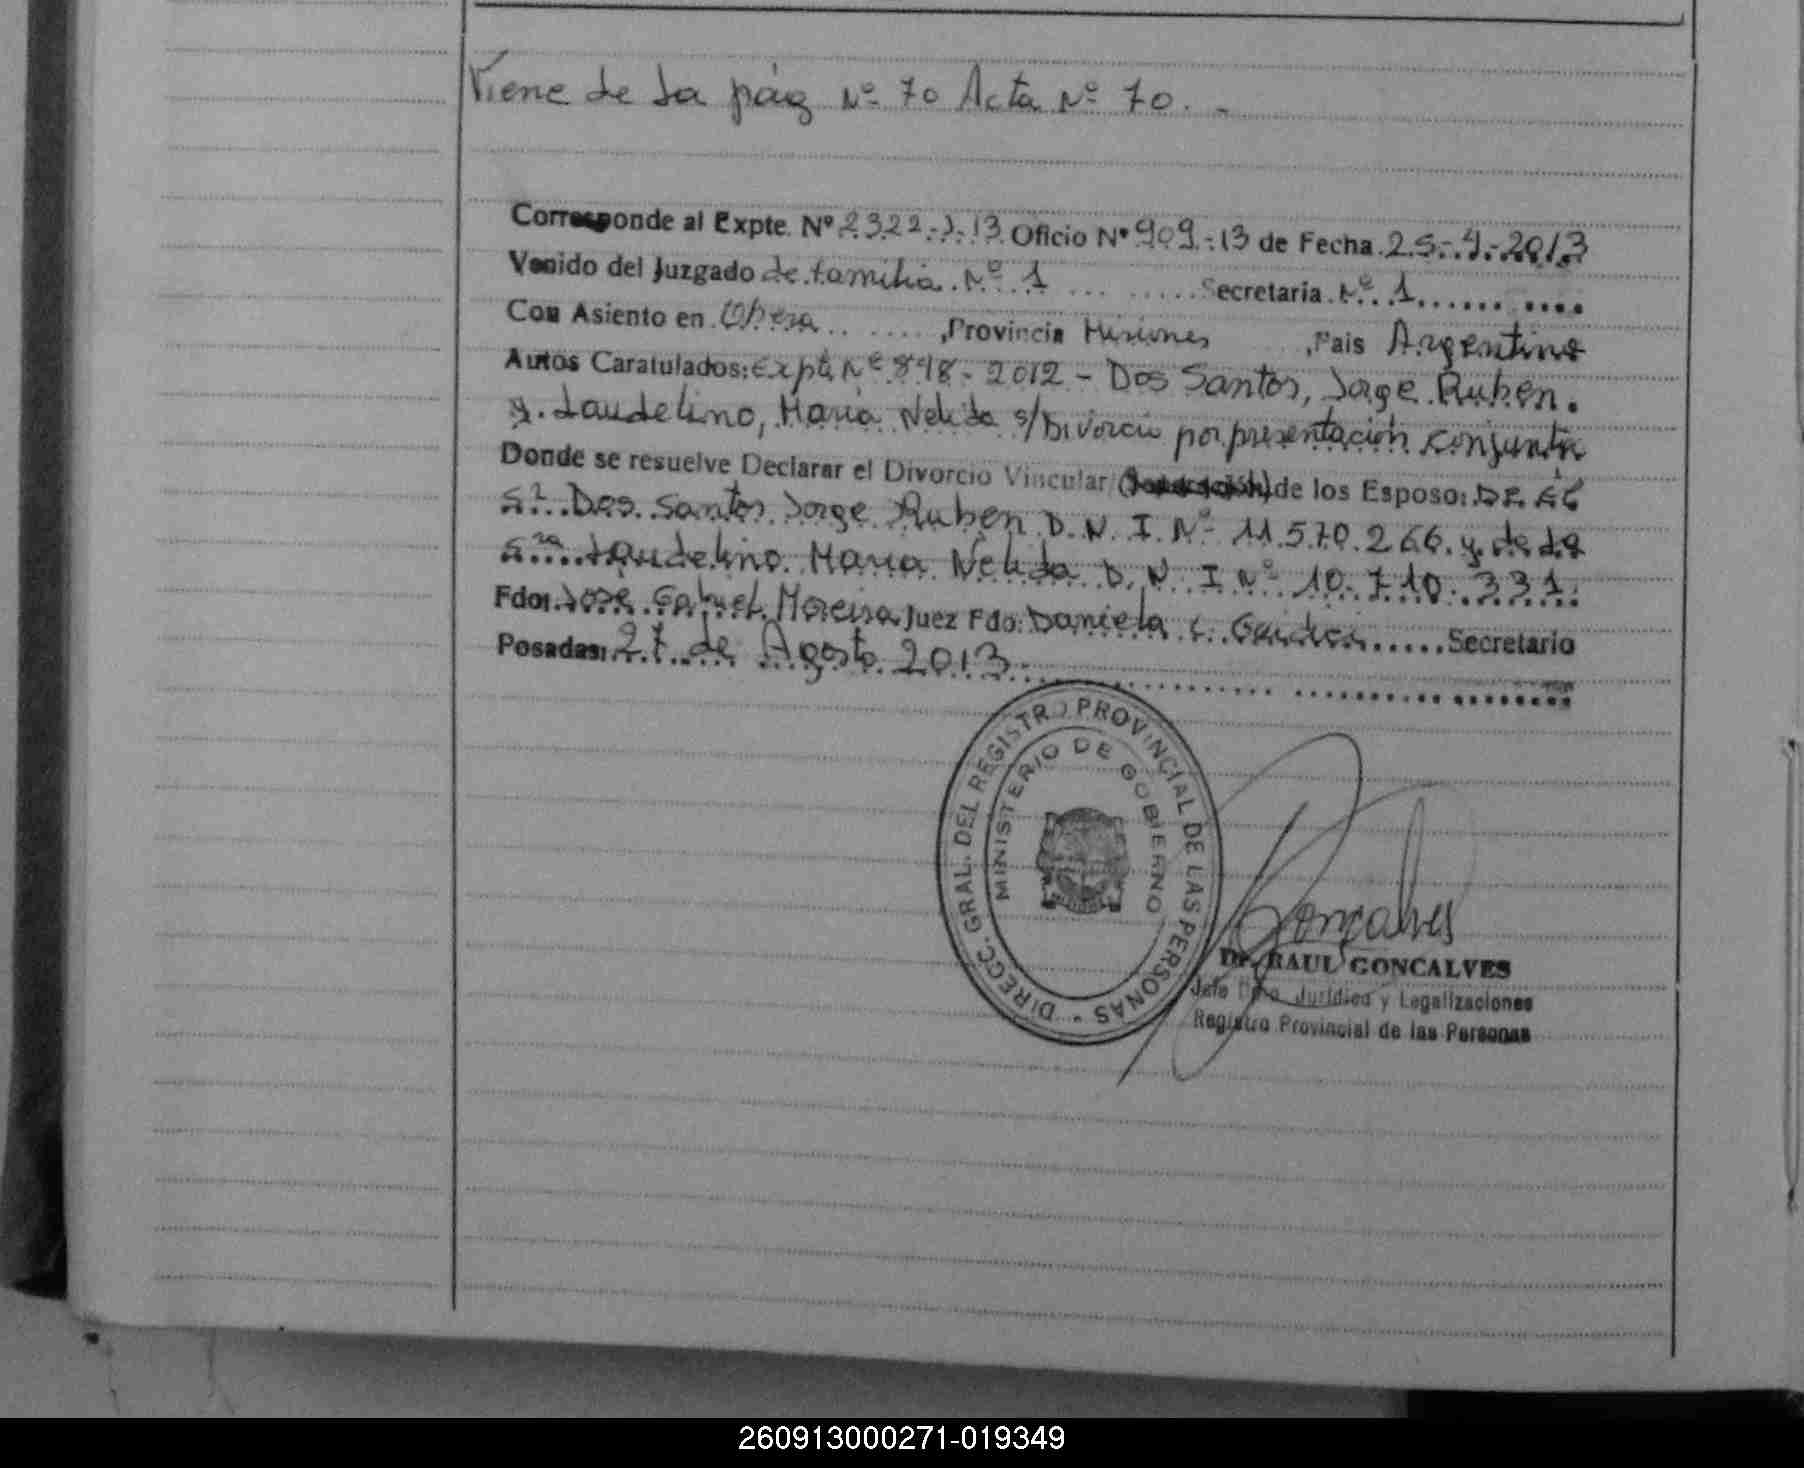 Viene de la pág Nº 70 Acta Nº 70.-
Corresponde al Expte. Nº 2322-J-13 Oficio Nº 909-13 de Fecha 25-4-2013
Venido del Juzgado de familia Nº 1 Secretaría Nº 1
Con Asiento en Obera, Provincia Misiones, Pais Argentina
Autos Caratulados: Expte Nº 848-2012 - Dos Santos, Jorge Ruben
y Laudelino, Maria Nelida s/Divorcio por presentación conjunta
Donde se resuelve Declarar el Divorcio Vincular de los Esposo: DE EL
Sr. Dos Santos Jorge Ruben D.N.I. Nº 11.570.266 y de la
Sra Laudelino Maria Nelida D.N.I Nº 10.710.331
Fdo: Jose Gabriel Moreira Juez Fdo: Daniela Secretario
Posadas: 27 de Agosto 2013
DIRECC. GRAL. DEL REGISTRO PROVINCIAL DE LAS PERSONAS
MINISTERIO DE GOBIERNO
Goncalves
Dr. RAUL GONCALVES
Jefe Dpto. Jurídico y Legalizaciones
Registro Provincial de las Personas
260913000271-019349